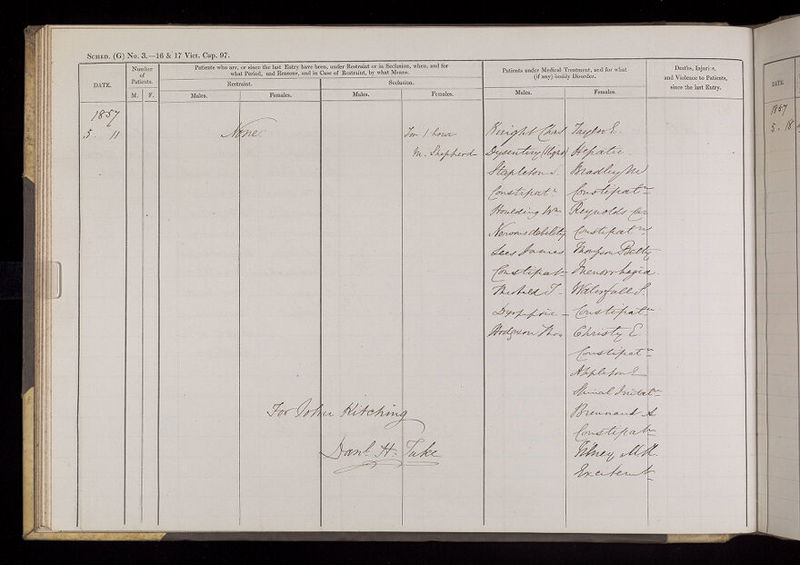 SCHED. (G) No. 3.—16 & 17 Vict. Cap. 97.
DATE.
Number of Patients.
M. F.
Patients who are, or since the last Entry have been, under Restraint or in Seclusion, when, and for
what Period, and Reasons, and in Case of Restraint, by what Means.
Restraint.
Seclusion.
Males. Females. Males. Females.
Patients under Medical Treatment, and for what
(if any) bodily Disorder.
Males. Females.
Deaths, Injuries,
and Violence to Patients,
since the last Entry.
DATE.
1857
1857
5. 11
None
For 1 hour
Knight
Taylor E.
5. 18
M. Shepherd
Dysentery
Hepatic
Stapleton
Bradley M
Constipatn
Constipatn
Houlding Wm
Reynolds Car
Nervous debility
Constipatn
Lees James
Thompson Betty
Constipatn
Menorrhagia
Waterfall S.
Constipatn
Hodgson Thos
Christy E
Constipatn
Appleton E
Spinal Irritatn
For John Kitching
Brennand A
Constipatn
Danl. H. Tuke
Excitemt